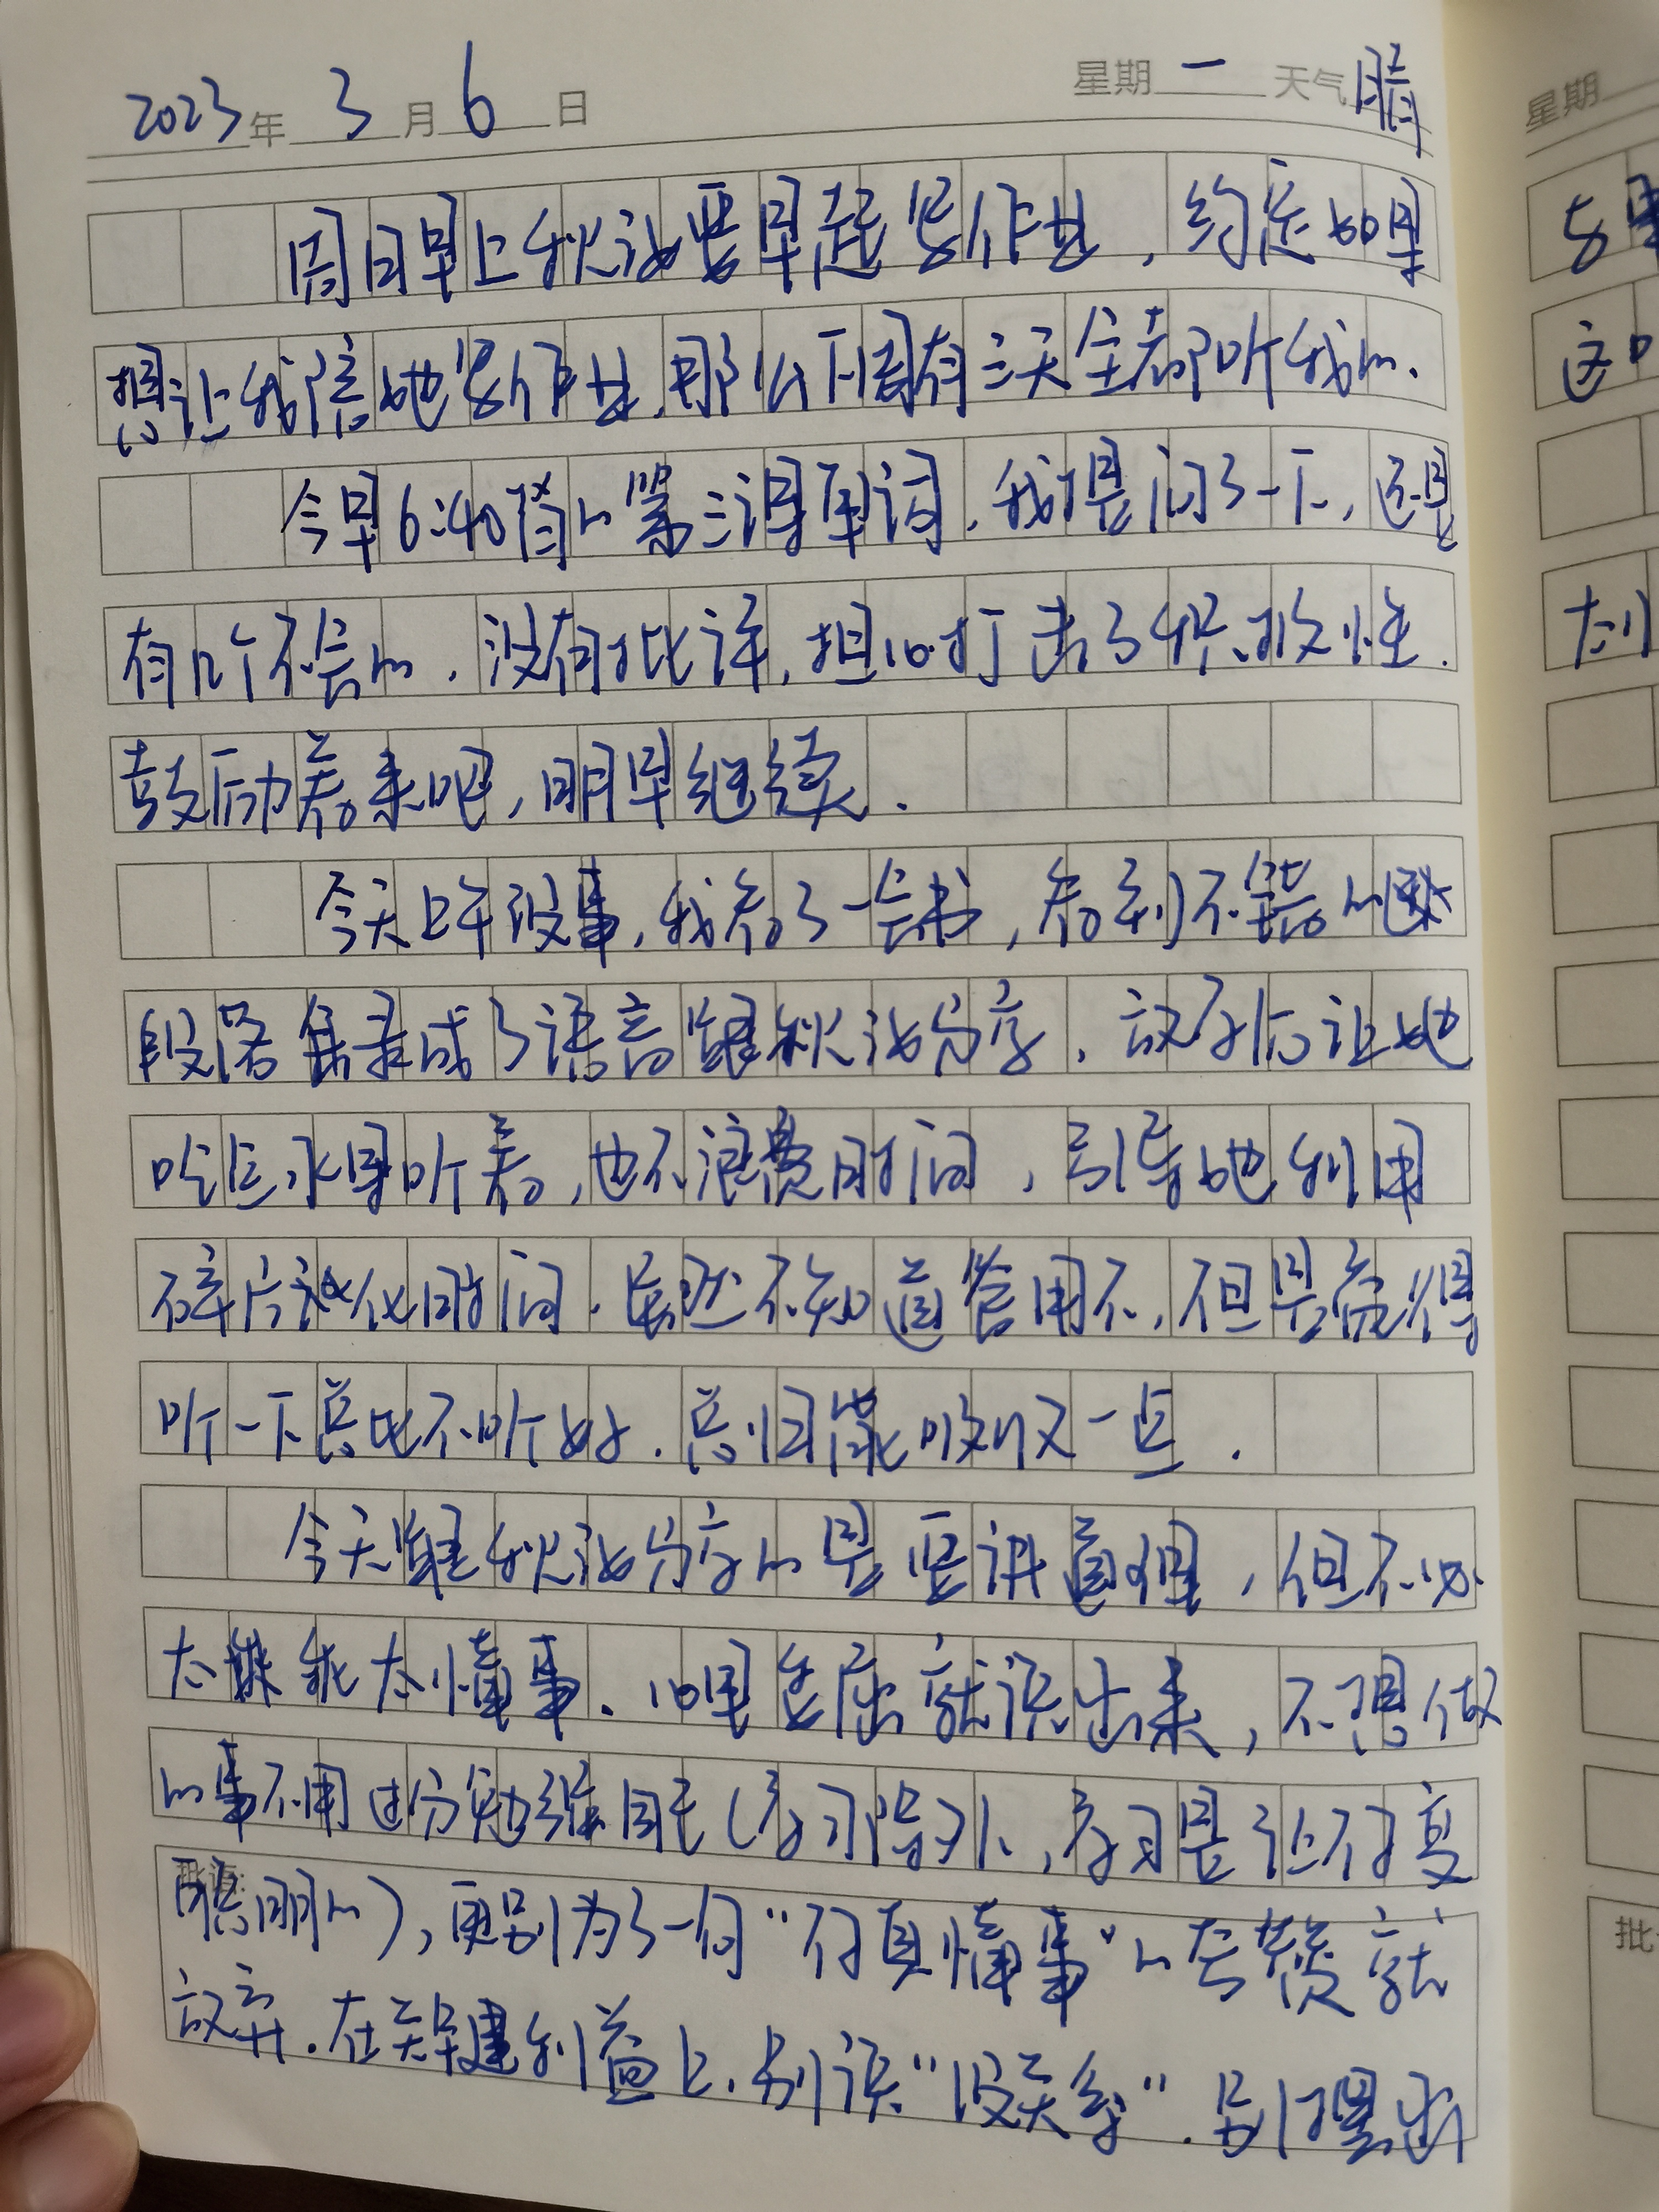 2023年3月6日 星期一 天气晴
周日早上秋汝要早起写作业，约定如果
想让我陪她写作业，那么下周有三天全都听我的.
今早6:40背的第三课单词，我提问了一下，还是
有几个不会的，没有批评，担心打击了积极性.
鼓励着来吧，明早继续.
今天上午没事，我看了一会书，看到不错的
段落录成了语音跟秋汝分享，放学后让她
吃点水果听着，也不浪费时间，引导她利用
碎片化时间.虽然不知道管用不，但是觉得
听一下总比不听好.总归能吸收一点.
今天跟秋汝分享的是要讲道理，但不必
太懂事.心里委屈就说出来，不想做
的事不用过分勉强自己（学习除外，学习是让你变
聪明的），更别为了一句“你真懂事”的夸赞就
放弃.在关键利益上，别说“没关系”.别把思
星期
写
这
太
批
批语: